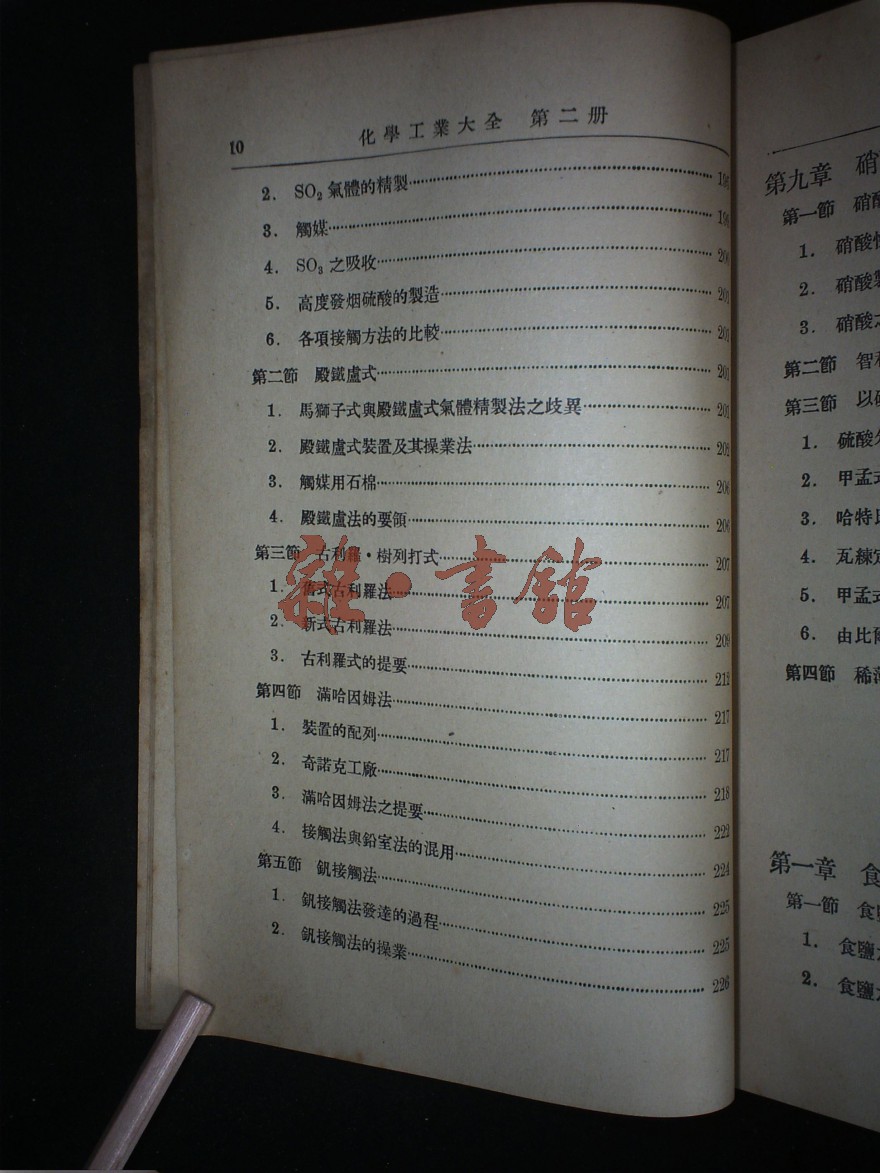 10 化學工業大全 第二册
2. SO₂ 氣體的精製
3. 觸媒
4. SO₃ 之吸收
5. 高度發烟硫酸的製造 201
6. 各項接觸方法的比較 201
第二節 殿鐵盧式 201
1. 馬獅子式與殿鐵盧式氣體精製法之歧異 201
2. 殿鐵盧式裝置及其操業法 202
3. 觸媒用石棉 206
4. 殿鐵盧法的要領 206
第三節 古利羅·樹列打式 207
1. 舊式古利羅法 207
2. 新式古利羅法 209
3. 古利羅式的提要 212
第四節 滿哈因姆法 217
1. 裝置的配列 217
2. 奇諾克工廠 218
3. 滿哈因姆法之提要 222
4. 接觸法與鉛室法的混用 224
第五節 釩接觸法 225
1. 釩接觸法發達的過程 225
2. 釩接觸法的操業 226
雜·書館
第九章 硝
第一節 硝酸
1. 硝酸性
2. 硝酸製
3. 硝酸之
第二節 智利
第三節 以硫
1. 硫酸分
2. 甲孟式
3. 哈特
4. 瓦練定
5. 甲孟式
6. 由比爾
第四節 稀薄
第一章 食
第一節 食鹽
1. 食鹽
2. 食鹽